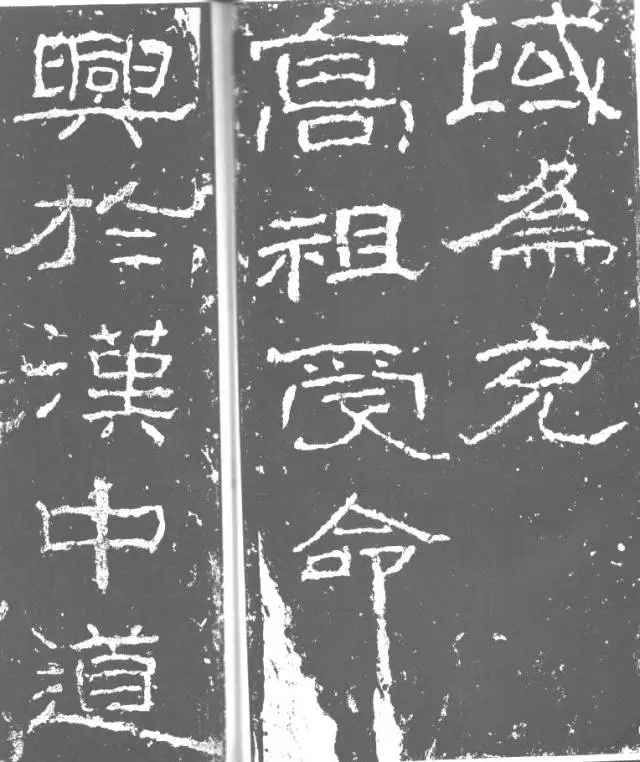 域為充
高祖受命
興於漢中道